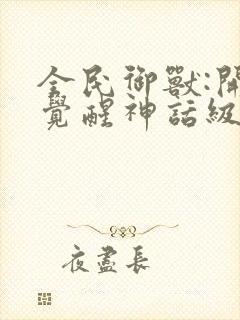 全民御獸:開
覺醒神話級
夜盡長